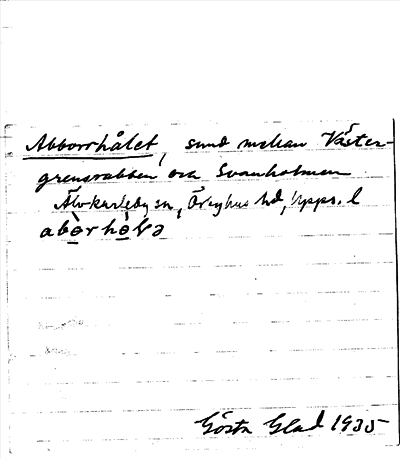 Abborrhålet, sund mellan Väster-
grensrabben och Svanholmen
Älvkarleby sn, Örbyhus hd, Upps. l
abòrhò̱lə
Gösta Glad 1935